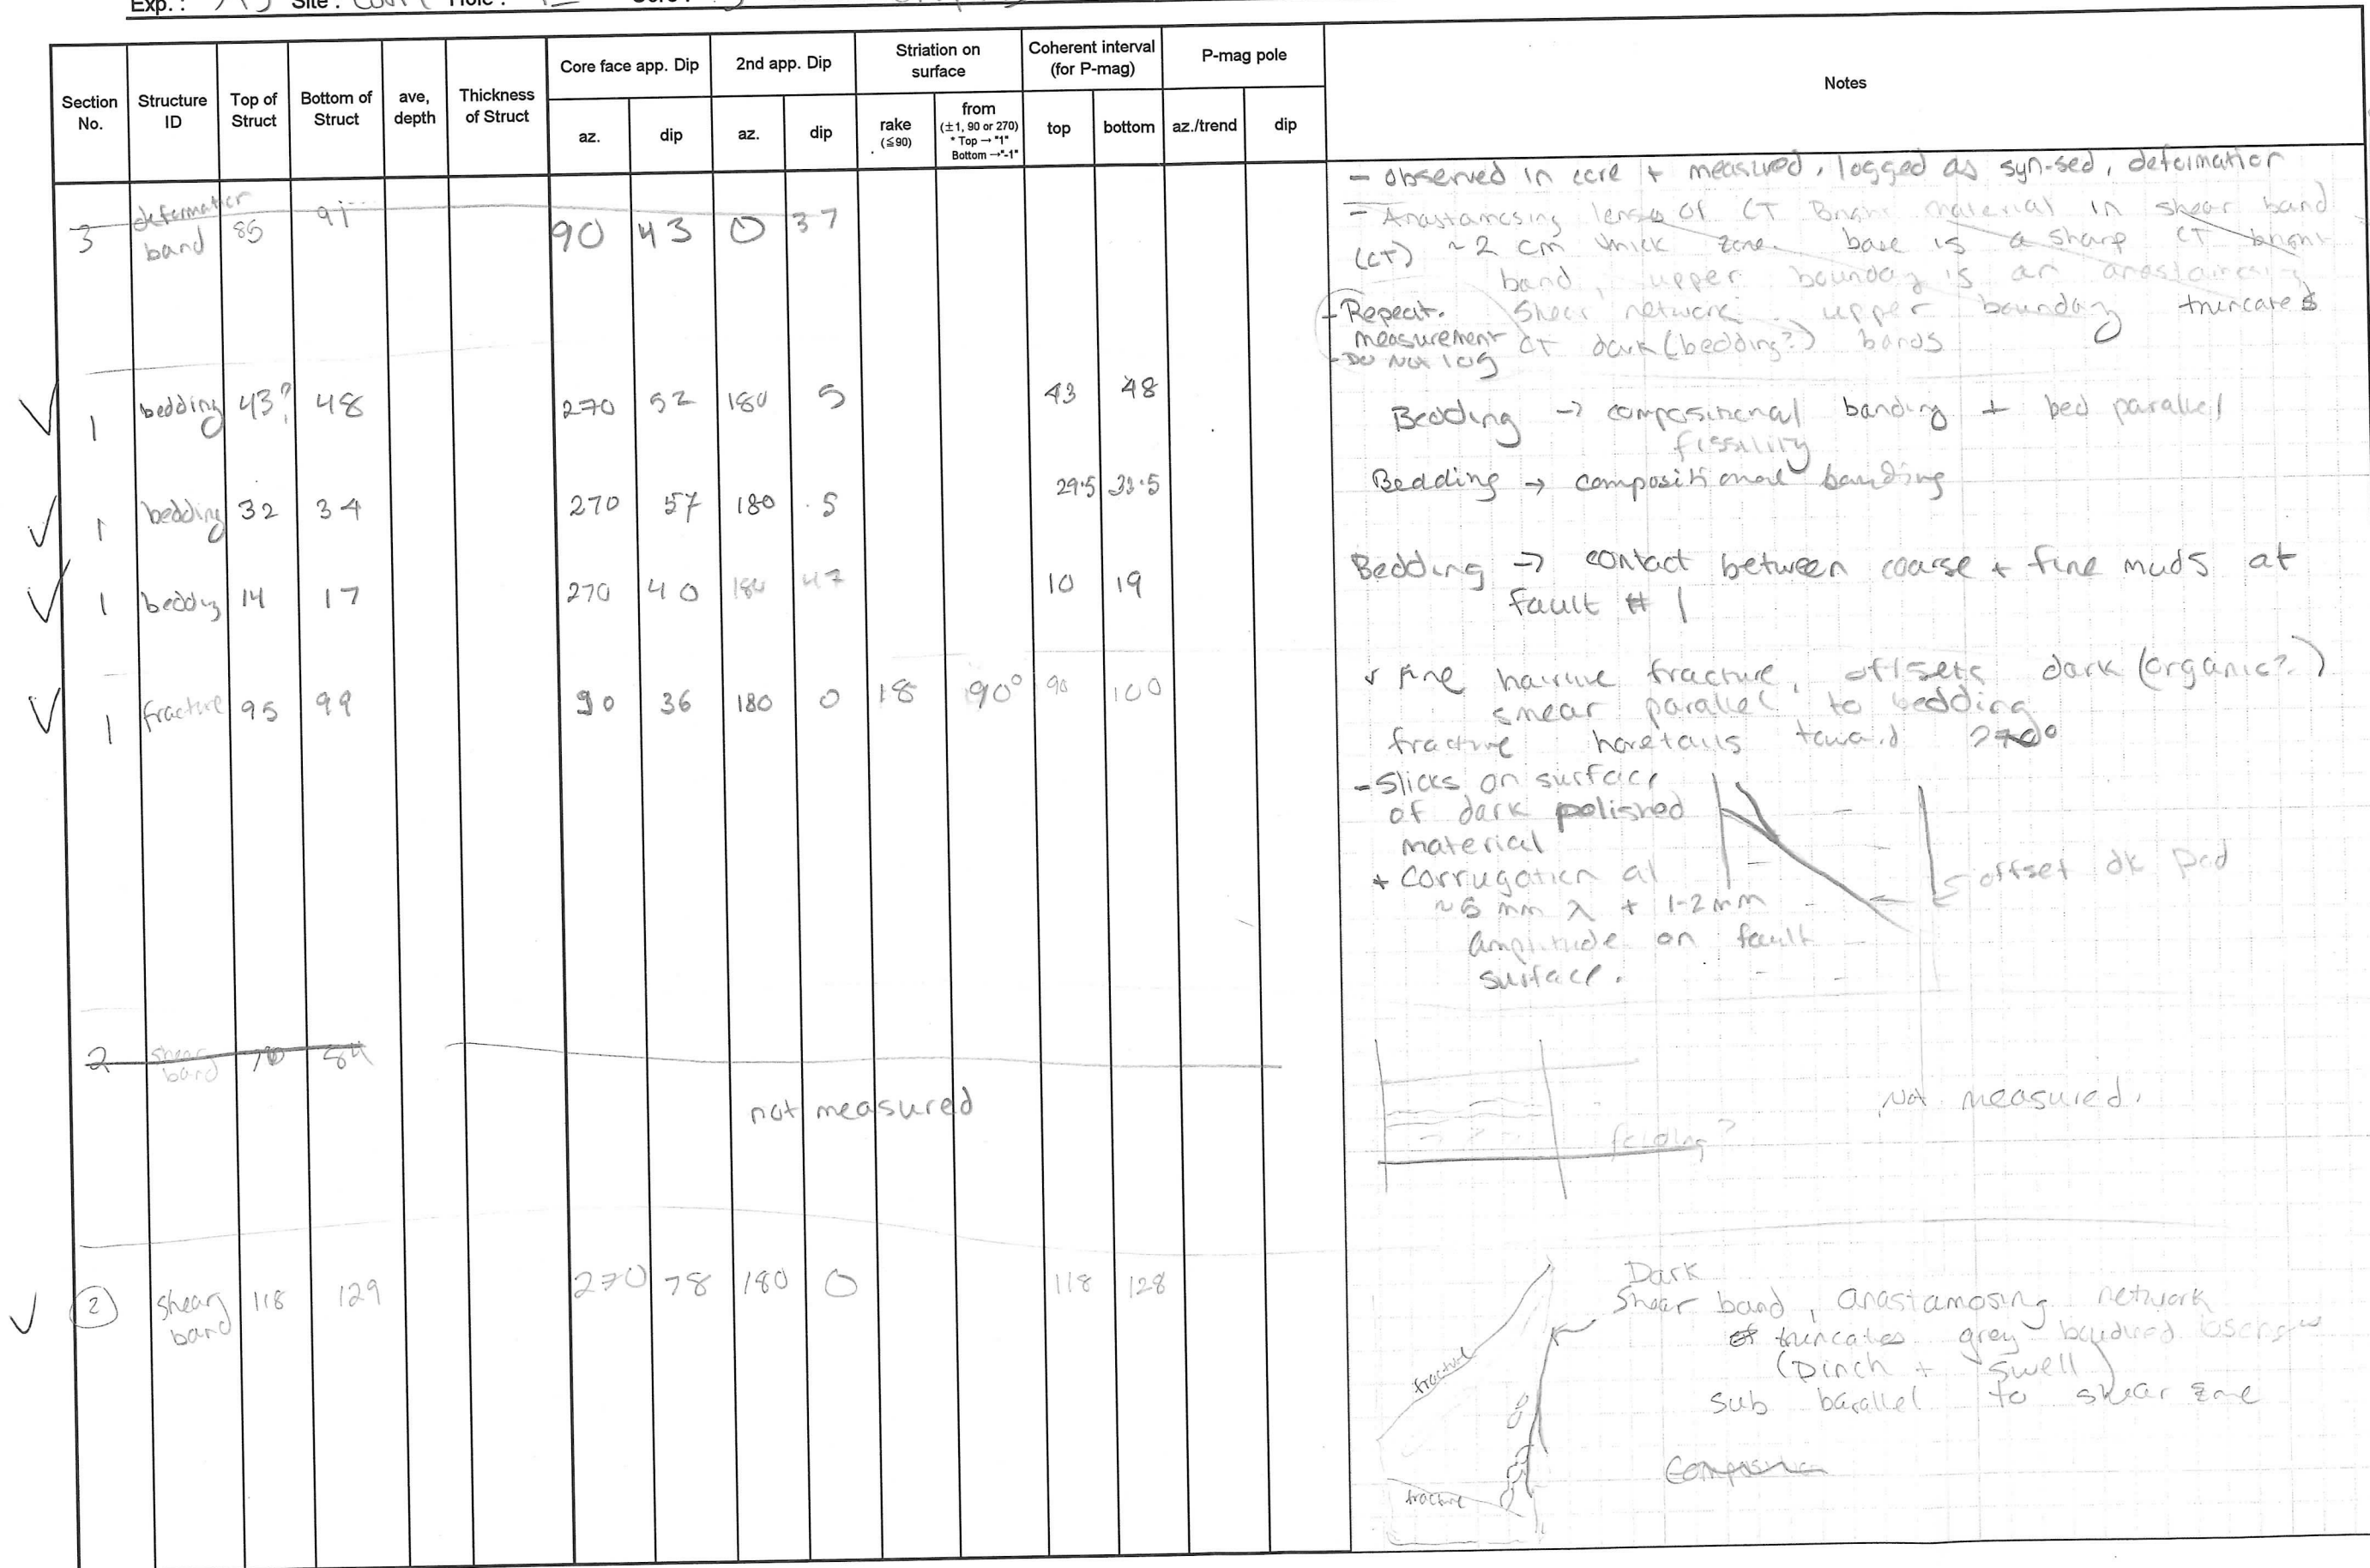 Exp. : Site : Hole :
Section No. Structure ID Top of Struct Bottom of Struct ave, depth Thickness of Struct Core face app. Dip 2nd app. Dip Striation on surface Coherent interval (for P-mag) P-mag pole Notes
az. dip az. dip rake (≦90) from (±1, 90 or 270) * Top → "1" Bottom →"-1" top bottom az./trend dip
3 deformation band 85 91 90 43 0 37
- Observed in core + measured, logged as syn-sed, deformation
- Anastamosing lense of CT Bright material in shear band
(CT) ~2 cm thick zone. base is a sharp CT bright
band, upper boundary is an anastamosing
shear network. upper boundary truncates
CT dark (bedding?) bands
- Repeat.
measurement
- Do Not log
✓ 1 bedding 43? 48 270 52 180 5 43 48
Bedding → compositional banding + bed parallel
fissility
✓ 1 bedding 32 34 270 57 180 5 29.5 33.5
Bedding → compositional banding
✓ 1 bedding 14 17 270 40 180 47 10 19
Bedding → contact between coarse + fine muds at
fault # 1
✓ 1 fracture 95 99 90 36 180 0 18 90° 90 100
Fine hairline fracture, offsets dark (organic?)
smear parallel to bedding
fracture horetails toward 270°
- Slicks on surface
of dark polished
material
+ corrugation at
~5 mm λ + 1-2 mm
amplitude on fault
surface.
offset dk
2 shear band 70 84
not measured
Not measured.
✓ 2 shear band 118 129 270 78 180 0 118 128
Dark
Shear band, anastamosing network
truncates grey
(Pinch + swell)
sub parallel to shear zone
fracture
fracture